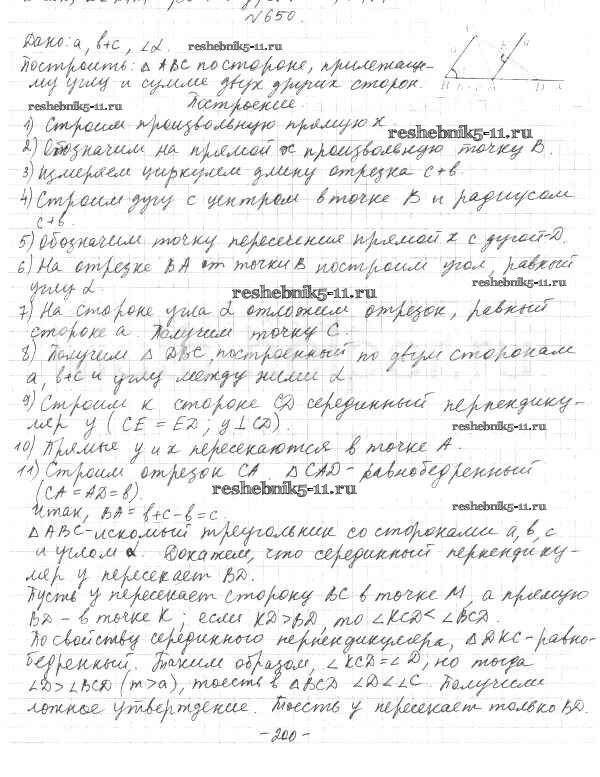 №650.
Дано: a, b+c, ∠α. reshebnik5-11.ru
Построить: △ABC по стороне, прилежаще-
му углу и сумме двух других сторон.
reshebnik5-11.ru Построение.
1) Строим произвольную прямую x.
reshebnik5-11.ru
2) Обозначим на прямой x произвольную точку B.
3) Измеряем циркулем длину отрезка c+b.
4) Строим дугу с центром в точке B и радиусом
c+b.
5) Обозначим точку пересечения прямой x с дугой-D.
6) На отрезке BA от точки B построим угол, равный
углу α. reshebnik5-11.ru
reshebnik5-11.ru
7) На стороне угла α отложим отрезок, равный
стороне a. Получим точку C.
8) Получим △DBC, построенный по двум сторонам
a, b+c и углу между ними α.
9) Строим к стороне CD серединный перпендику-
ляр y (CE = ED; y⊥CD). reshebnik5-11.ru
10) Прямые y и x пересекаются в точке A.
11) Строим отрезок CA. △CAD-равнобедренный
(CA = AD = b). reshebnik5-11.ru
Итак, BA = b+c-b=c. reshebnik5-11.ru
△ABC-искомый треугольник со сторонами a, b, c
и углом α. Докажем, что серединный перпендику-
ляр y пересекает BD.
Пусть y пересекает сторону BC в точке M, а прямую
BD - в точке K; если KD>BD, то ∠KCD<∠BCD.
По свойству серединного перпендикуляра, △DKC-равно-
бедренный. Таким образом, ∠KCD=∠D, но тогда
∠D>∠BCD (m>a), то есть в △BCD ∠D<∠C. Получили
ложное утверждение. То есть y пересекает только BD.
-200-